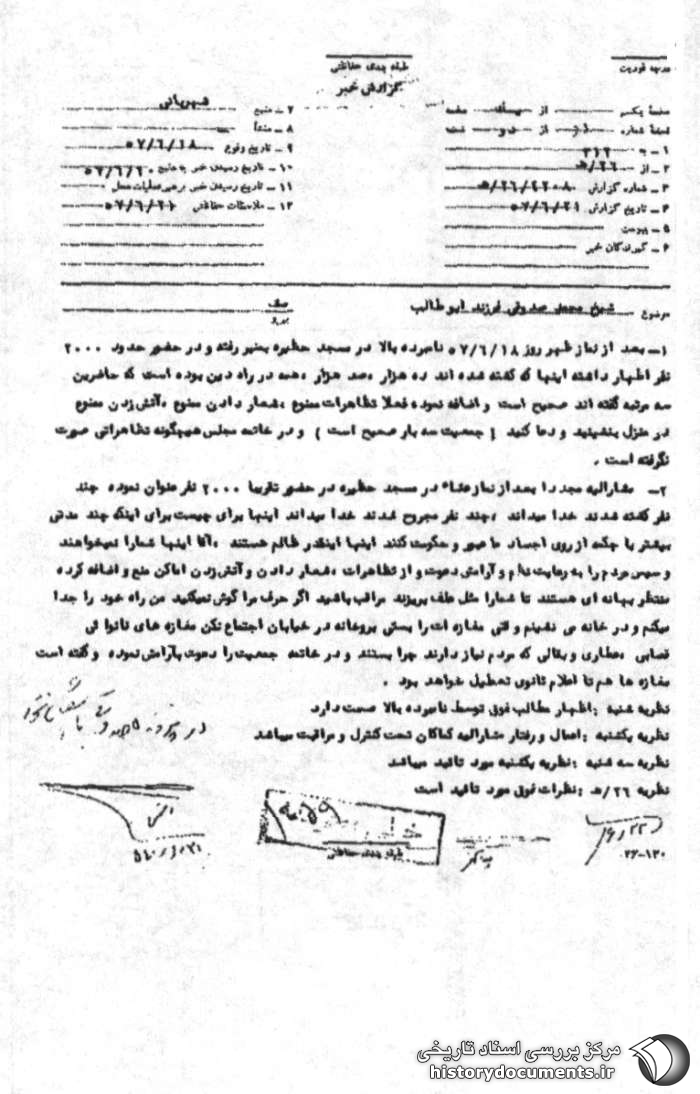 درجه فوریت
طبقه بندی حفاظتی
گزارش خبر
صفحه یکم از صفحه
نسخه شماره از دو نسخه
۱ - به ۳۱۲
۲ - از ۲۶/ه
۳ - شماره گزارش
۴ - تاریخ گزارش ۵۷/۶/۲۱
۵ - پیوست
۶ - گیرندگان خبر
۷ - منبع شهربانی
۸ - منشأ
۹ - تاریخ وقوع ۵۷/۶/۱۸
۱۰ - تاریخ رسیدن خبر به منبع ۵۷/۶/۲۰
۱۱ - تاریخ رسیدن خبر برهبر عملیات محل
۱۲ - ملاحظات حفاظتی ۵۷/۶/۲۱
موضوع شیخ محمد صدوقی فرزند ابوطالب
۱- بعد از نماز ظهر روز ۵۷/۶/۱۸ نامبرده بالا در مسجد حظیره بمنبر رفته و در حضور حدود ۲۰۰۰
نفر اظهار داشته اینها که کشته شده اند ده هزار ،صد هزار ،همه در راه دین بوده است که حاضرین
سه مرتبه گفته اند صحیح است و اضافه نموده فعلا تظاهرات ممنوع ،شعار دادن ممنوع ،آتش زدن ممنوع
در منزل بنشینید و دعا کنید ( جمعیت سه بار صحیح است ) و در خاتمه مجلس هیچگونه تظاهراتی صورت
نگرفته است .
۲- مشارالیه مجددا بعد از نماز عشاء در مسجد حظیره در حضور تقریبا ۲۰۰۰ نفر عنوان نموده چند
نفر کشته شدند خدا میداند ،چند نفر مجروح شدند خدا میداند اینها برای چیست برای اینکه چند مدتی
بیشتر با چکمه از روی اجساد ما عبور و حکومت کنند اینها اینقدر ظالم هستند ،آقا اینها شما را نمیخواهند
و سپس مردم را به رعایت نظم و آرامش دعوت و از تظاهرات ،شعار دادن و آتش زدن اماکن منع و اضافه کرده
منتظر بهانه ای هستند تا شما را مثل علف بریزند مراقب باشید اگر حرف مرا گوش نمیکنید من راه خود را جدا
میکنم و در خانه می نشینم و قتی مغازه ات را بستی بروخانه در خیابان اجتماع نکن مغازه های نانوائی
قصابی ،عطاری و بقالی که مردم نیاز دارند چرا بستند و در خاتمه جمعیت را دعوت بآرامش نموده و گفته است
مغازه ها هم تا اعلام ثانوی تعطیل خواهد بود .
نظریه شنبه :اظهار مطالب فوق توسط نامبرده بالا صحت دارد
نظریه یکشنبه :اعمال و رفتار مشارالیه کماکان تحت کنترل و مراقبت میباشد
نظریه سه شنبه :نظریه یکشنبه مورد تائید میباشد
نظریه ۲۶/ه :نظرات فوق مورد تائید است
طبقه بندی حفاظتی
۲۶-۱۳۰
مرکز بررسی اسناد تاریخی
historydocuments.ir